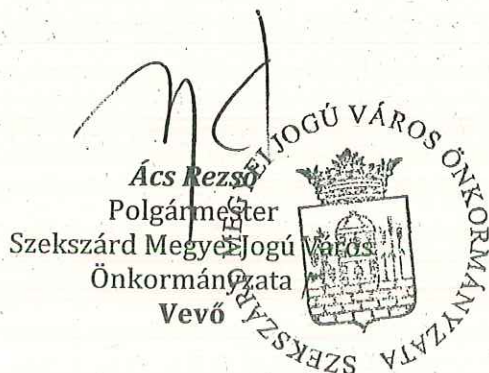 Ács Rezső
Polgármester
Szekszárd Megyei Jogú Város
Önkormányzata
Vevő
SZEKSZÁRD MEGYEI JOGÚ VÁROS ÖNKORMÁNYZATA